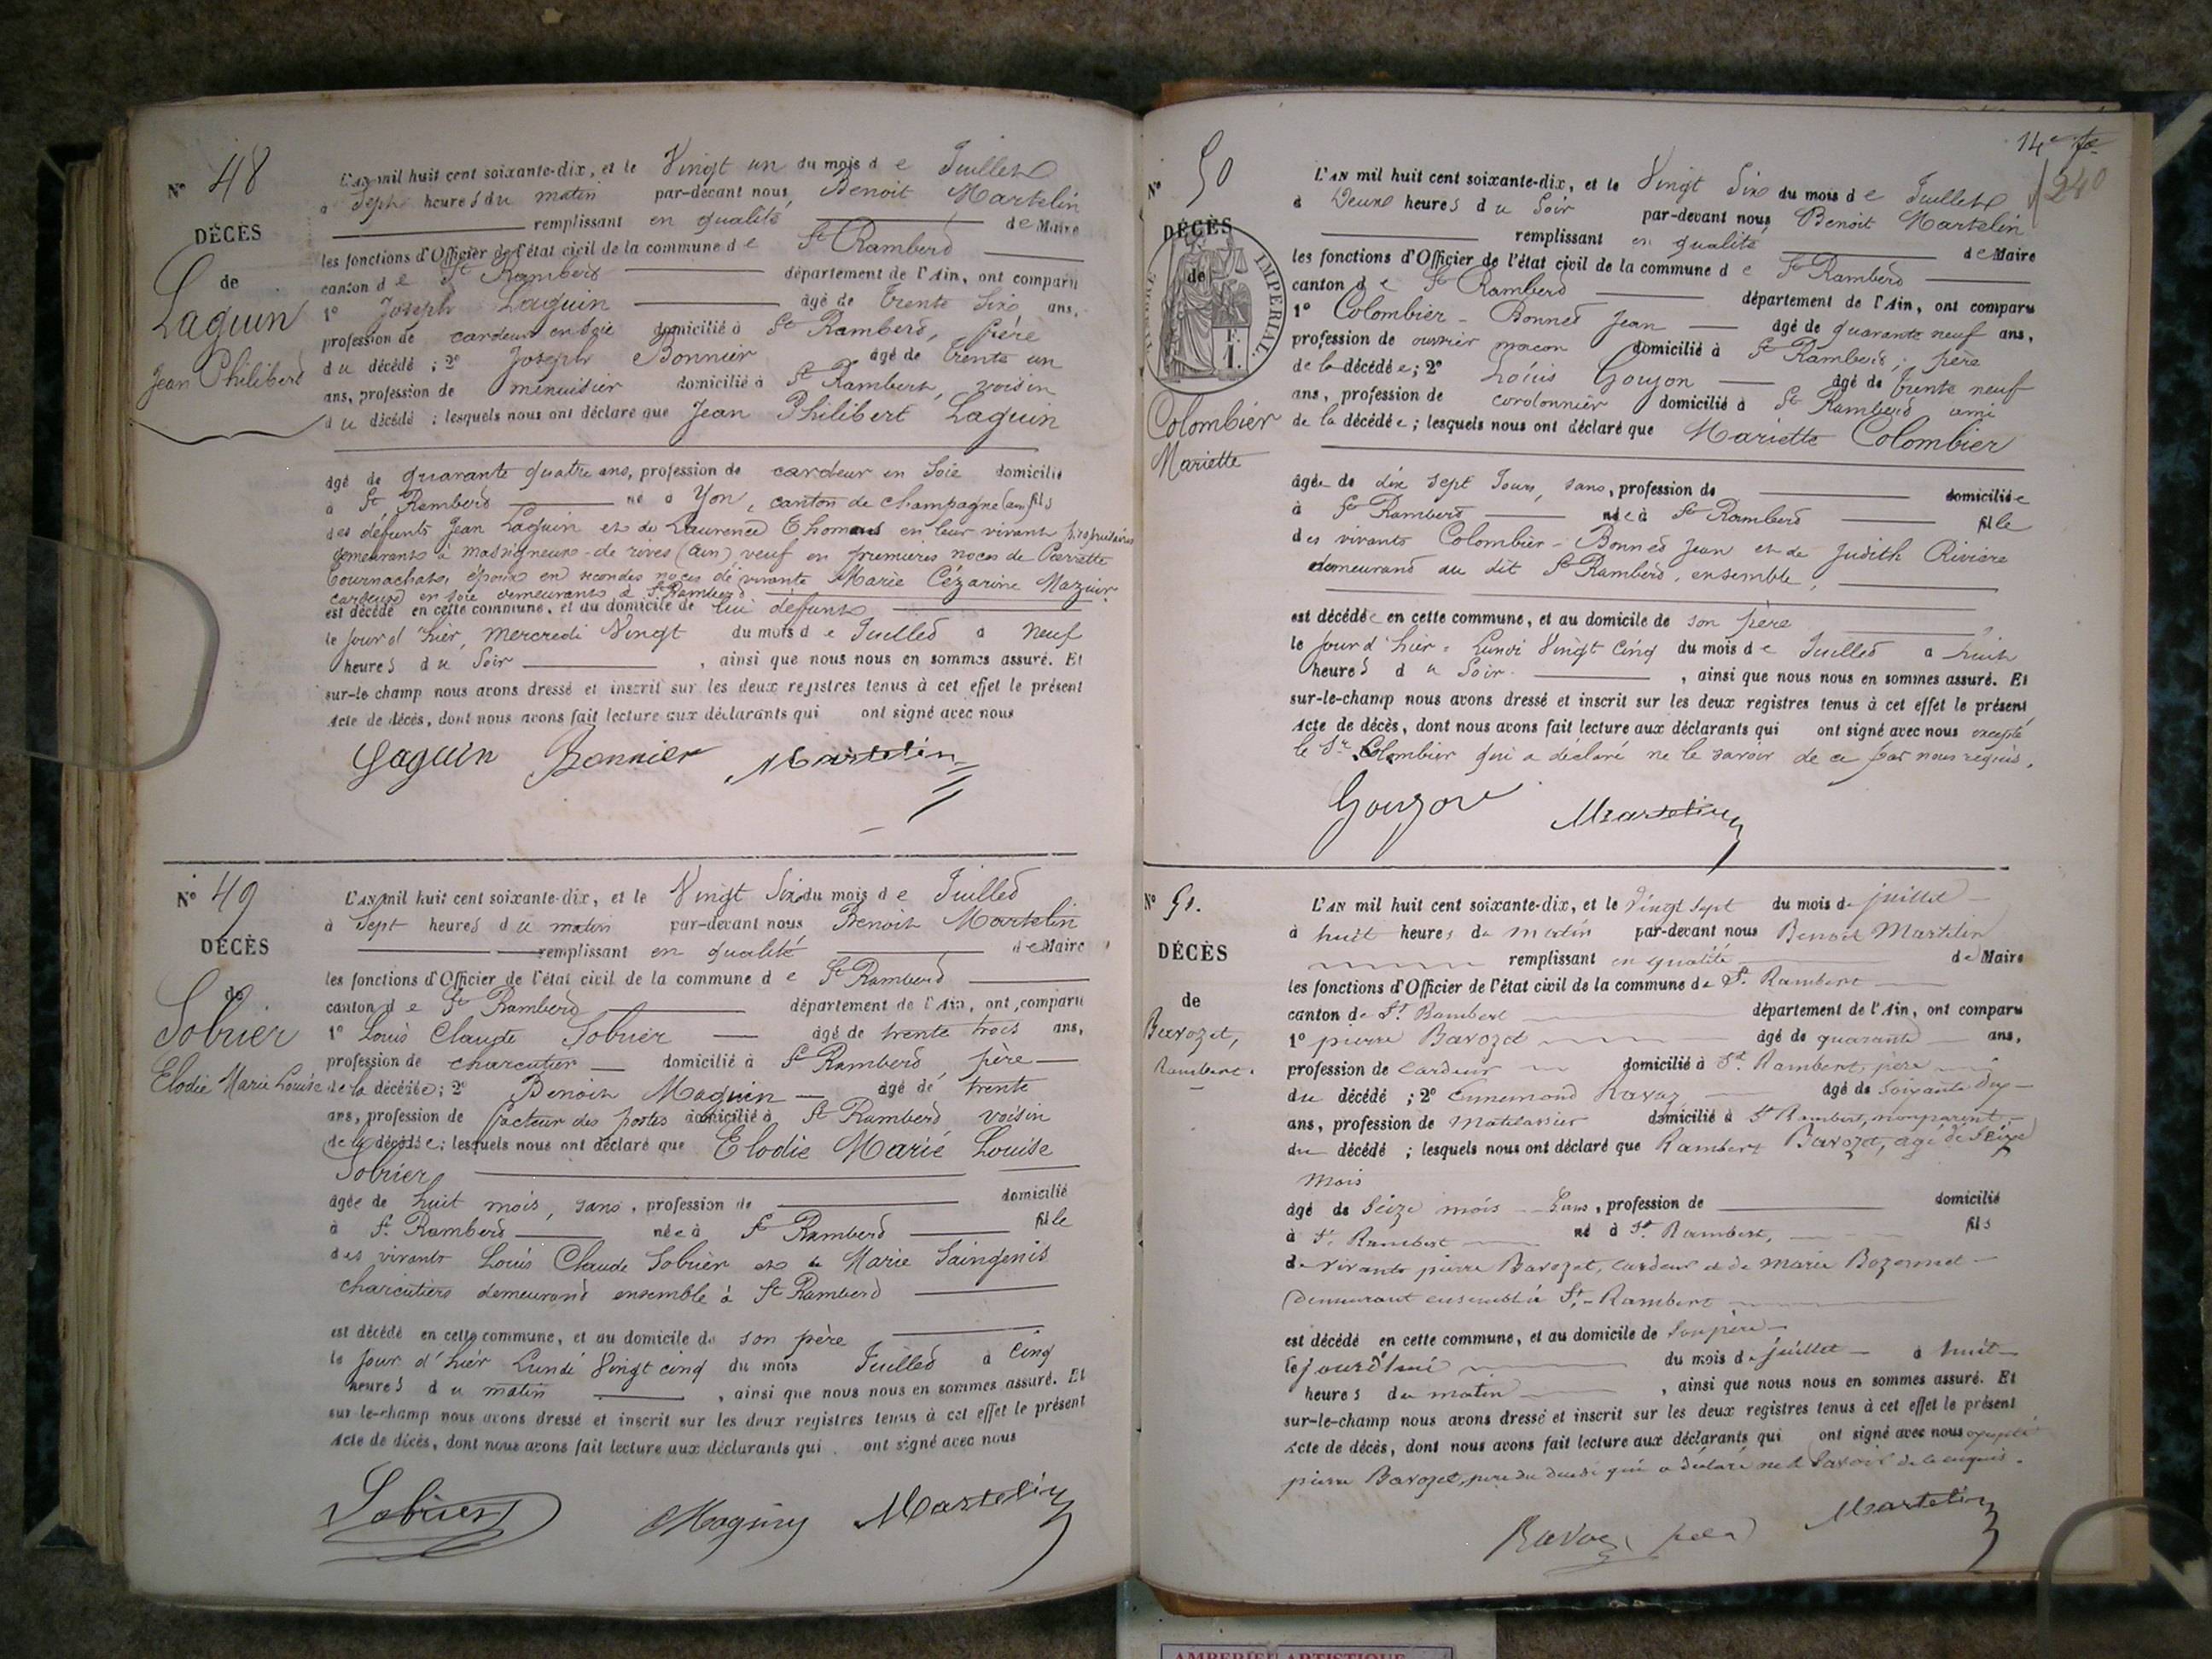 N° 48
DÉCÈS
de
Laguin
Jean Philibert
L'an mil huit cent soixante-dix, et le Vingt un du mois de Juillet
à Sept heures du matin par-devant nous, Benoit Martelin
remplissant en qualité de Maire
les fonctions d'Officier de l'état civil de la commune de St Rambert
canton de St Rambert département de l'Ain, ont comparu
1° Joseph Laguin âgé de trente six ans,
profession de cardeur en soie domicilié à St Rambert, frère
du décédé ; 2° Joseph Bonnier âgé de trente un
ans, profession de menuisier domicilié à St Rambert, voisin
du décédé ; lesquels nous ont déclaré que Jean Philibert Laguin
âgé de quarante quatre ans, profession de cardeur en Soie domicilié
à St Rambert né à Yon, canton de Champagne (ain) fils
des défunts Jean Laguin et de Laurence Thomas en leur vivant propriétaires
demeurants à massigneux-de-rives (ain) veuf en premières noces de Pierrette
époux en secondes noces de vivante Marie Cézarine Mazuir
cardeuse en soie demeurants à St Rambert
est décédé en cette commune, et au domicile de lui défunt
le jour d'hier, mercredi Vingt du mois de Juillet à neuf
heures du Soir , ainsi que nous nous en sommes assuré. Et
sur-le champ nous avons dressé et inscrit sur les deux registres tenus à cet effet le présent
Acte de décès, dont nous avons fait lecture aux déclarants qui ont signé avec nous
Laguin Bonnier Martelin
N° 49
DÉCÈS
de
Sobrier
Elodie Marie Louise
L'an mil huit cent soixante-dix, et le Vingt Six du mois de Juillet
à Sept heures du matin par-devant nous Benoit Martelin
remplissant en qualité de Maire
les fonctions d'Officier de l'état civil de la commune de St Rambert
canton de St Rambert département de l'Ain, ont comparu
1° Louis Claude Sobrier âgé de trente trois ans,
profession de charcutier domicilié à St Rambert, père
de la décédée ; 2° Benoit Maguin âgé de trente
ans, profession de facteur des postes domicilié à St Rambert, voisin
de la décédée ; lesquels nous ont déclaré que Elodie Marie Louise
Sobrier
âgée de huit mois, sans, profession de domicilié
à St Rambert née à St Rambert fille
des vivants Louis Claude Sobrier et de Marie Saingenis
charcutiers demeurant ensemble à St Rambert
est décédé en cette commune, et au domicile de son père
le Jour d'hier Lundi Vingt cinq du mois Juillet à Cinq
heures du matin , ainsi que nous nous en sommes assuré. Et
sur-le-champ nous avons dressé et inscrit sur les deux registres tenus à cet effet le présent
Acte de décès, dont nous avons fait lecture aux déclarants qui ont signé avec nous
Sobrier Maguin Martelin
240
N° 50
DÉCÈS
de
TIMBRE IMPERIAL.
F.
1.
Colombier
Mariette
L'AN mil huit cent soixante-dix, et le Vingt Six du mois de Juillet
à Deux heures du Soir par-devant nous Benoit Martelin
remplissant en qualité de Maire
les fonctions d'Officier de l'état civil de la commune de St Rambert
canton de St Rambert département de l'Ain, ont comparu
1° Colombier - Bonnet Jean âgé de quarante neuf ans,
profession de ouvrier maçon domicilié à St Rambert, père
de la décédée ; 2° Louis Goujon âgé de trente neuf
ans, profession de cordonnier domicilié à St Rambert ami
de la décédée ; lesquels nous ont déclaré que Mariette Colombier
âgée de dix sept Jours, sans, profession de domiciliée
à St Rambert née à St Rambert fille
des vivants Colombier - Bonnet Jean et de Judith Rivière
demeurant au dit St Rambert, ensemble,
est décédée en cette commune, et au domicile de son père
le Jour d'hier, Lundi Vingt Cinq du mois de Juillet à huit
heures du Soir , ainsi que nous nous en sommes assuré. Et
sur-le-champ nous avons dressé et inscrit sur les deux registres tenus à cet effet le présent
Acte de décès, dont nous avons fait lecture aux déclarants qui ont signé avec nous excepté
le Sr Colombier qui a déclaré ne le savoir de ce par nous requis.
Goujon Martelin
N° 51.
DÉCÈS
de
Bavozet,
Rambert.
L'AN mil huit cent soixante-dix, et le Vingt Sept du mois de juillet
à huit heures du matin par-devant nous Benoit Martelin
remplissant en qualité de Maire
les fonctions d'Officier de l'état civil de la commune de St. Rambert
canton de St. Rambert département de l'Ain, ont comparu
1° pierre Bavozet âgé de quarante ans,
profession de Cardeur domicilié à St. Rambert, père
du décédé ; 2° Ennemond Ravaz âgé de Soixante dix
ans, profession de Matelassier domicilié à St Rambert, non parent
du décédé ; lesquels nous ont déclaré que Rambert Bavozet, agé de Seize
mois
âgé de Seize mois Sans, profession de domicilié
à St. Rambert né à St. Rambert, fils
de vivants pierre Bavozet, cardeur et de marie Bozonnet
demeurant ensemble à St.-Rambert
est décédé en cette commune, et au domicile de Son père
le jourd'hui du mois de juillet à huit
heures du matin , ainsi que nous nous en sommes assuré. Et
sur-le-champ nous avons dressé et inscrit sur les deux registres tenus à cet effet le présent
Acte de décès, dont nous avons fait lecture aux déclarants qui ont signé avec nous excepté
pierre Bavozet, père du décédé qui a déclaré ne le Savoir de ce enquis.
Ravaz Martelin
AMBERIEU ARTISTIQUE